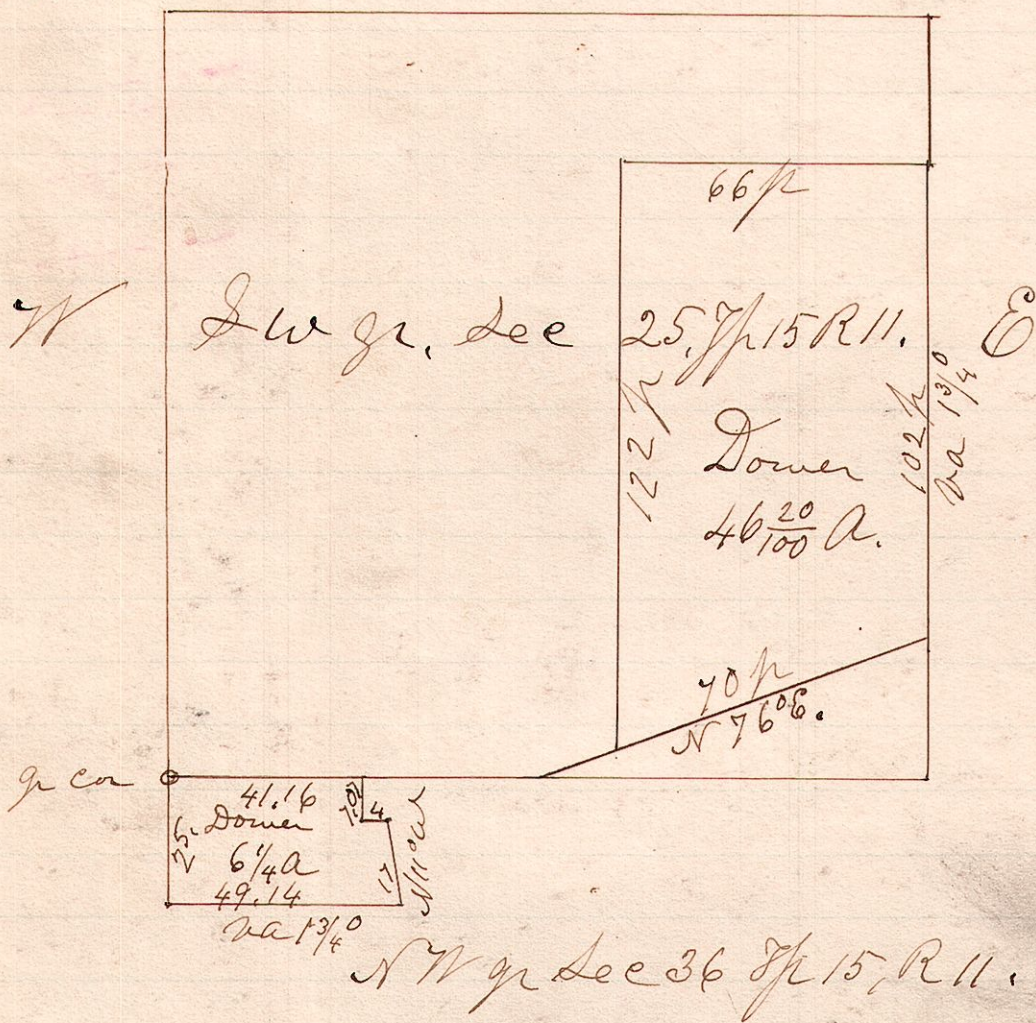 66 p
W
S W qr. Sec 25, Tp 15 R 11.
E
122 p
102 p
Va 1 3/4°
Dower
46 20/100 A.
70 p
N 76° E.
qr cor
41.16
4
25.
Dower
6 1/4 A
17
N 11° W
49.14
Va 1 3/4°
N W qr Sec 36 Tp 15, R 11.